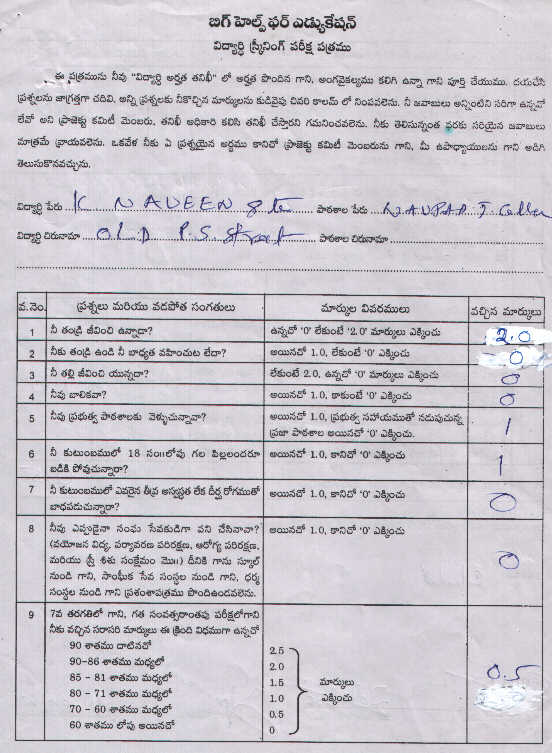 బిగ్ హెల్ప్ ఫర్ ఎడ్యుకేషన్
విద్యార్ధి స్క్రీనింగ్ పరీక్ష పత్రము
ఈ పత్రమును నీవు "విద్యార్ధి అర్హత తనిఖీ" లో అర్హత పొందిన గాని, అంగవైకల్యము కలిగి ఉన్నా గాని పూర్తి చేయుము. దయచేసి
ప్రశ్నలను జాగ్రత్తగా చదివి, అన్ని ప్రశ్నలకు నీకొచ్చిన మార్కులను కుడివైపు చివరి కాలమ్ లో నింపవలెను. నీ జవాబులు అన్నింటిని సరిగా ఉన్నదో
లేవో అని ప్రాజెక్టు కమిటీ మెంబరు, తనిఖీ అధికారి కలిసి తనిఖీ చేస్తారని గమనించవలెను. నీకు తెలిసున్నంత వరకు సరియైన జవాబులు
మాత్రమే వ్రాయవలెను. ఒకవేళ నీకు ఏ ప్రశ్నయైన అర్ధము కానిచో ప్రాజెక్టు కమిటీ మెంబరును గాని, మీ ఉపాధ్యాయులను గాని అడిగి
తెలుసుకొనవచ్చును.
విద్యార్ధి పేరు K NAVEEN పాఠశాల పేరు
విద్యార్ధి చిరునామా OLD P.S. Street పాఠశాల చిరునామా
వ.నెం. ప్రశ్నలు మరియు వడపోత సంగతులు మార్కుల వివరములు వచ్చిన మార్కులు
1 నీ తండ్రి జీవించి ఉన్నాడా? ఉన్నచో '0' లేకుంటే '2.0' మార్కులు ఎక్కించు 2.0
2 నీకు తండ్రి ఉండి నీ బాధ్యత వహించుట లేదా? అయినచో 1.0, లేకుంటే '0' ఎక్కించు 0
3 నీ తల్లి జీవించి యున్నదా? లేకుంటే 2.0, ఉన్నచో '0' మార్కులు ఎక్కించు 0
4 నీవు బాలికవా? అయినచో 1.0, కాకుంటే '0' ఎక్కించు 0
5 నీవు ప్రభుత్వ పాఠశాలకు వెళ్ళుచున్నావా? అయినచో 1.0, ప్రభుత్వ సహాయముతో నడుపుచున్న 1
ప్రజా పాఠశాల అయినచో '0' ఎక్కించు.
6 నీ కుటుంబములో 18 సం॥లోపు గల పిల్లలందరూ అయినచో 1.0, కానిచో '0' ఎక్కించు 1
బడికి పోవుచున్నారా?
7 నీ కుటుంబములో ఎవరైన తీవ్ర అస్వస్థత లేక దీర్ఘ రోగముతో అయినచో 1.0, కానిచో '0' ఎక్కించు 0
బాధపడుచున్నారా?
8 నీవు ఎప్పుడైనా సంఘ సేవకుడిగా పని చేసినావా? అయినచో 1.0, కానిచో '0' ఎక్కించు 0
(వయోజన విద్య, పర్యావరణ పరిరక్షణ, ఆరోగ్య పరిరక్షణ,
మరియు స్త్రీ శిశు సంక్షేమం మొ॥) దీనికి గాను స్కూల్
నుండి గాని, సాంఘీక సేవ సంస్థల నుండి గాని, ధర్మ
సంస్థల నుండి గాని ప్రశంశాపత్రము పొందిఉండవలెను.
9 7వ తరగతిలో గాని, గత సంవత్సరాంతపు పరీక్షలోగాని
నీకు వచ్చిన సరాసరి మార్కులు ఈ క్రింది విధముగా ఉన్నచో
90 శాతము దాటినచో 2.5
90-86 శాతము మధ్యలో 2.0
85 - 81 శాతము మధ్యలో 1.5 మార్కులు 0.5
80 - 71 శాతము మధ్యలో 1.0 ఎక్కించు
70 - 60 శాతము మధ్యలో 0.5
60 శాతము లోపు అయినచో 0